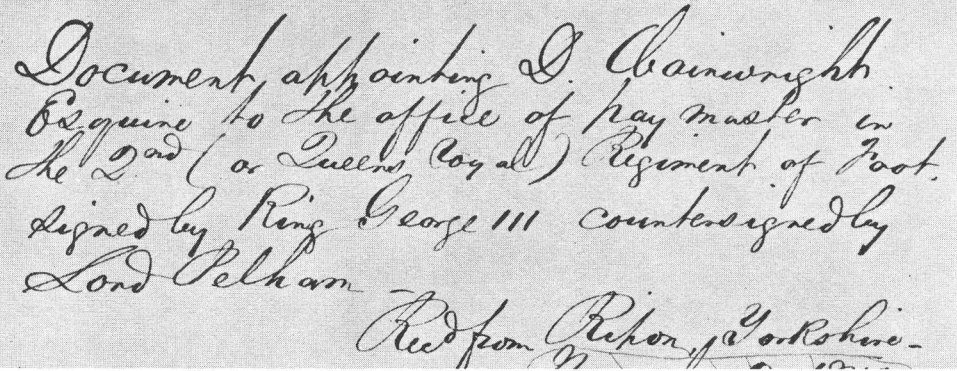 Document, appointing D. Wainwright
Esquire to the office of pay master in
the 2nd (or Queens Royal) Regiment of Foot.
signed by King George III countersigned by
Lord Pelham –
Recd from Ripon, Yorkshire –